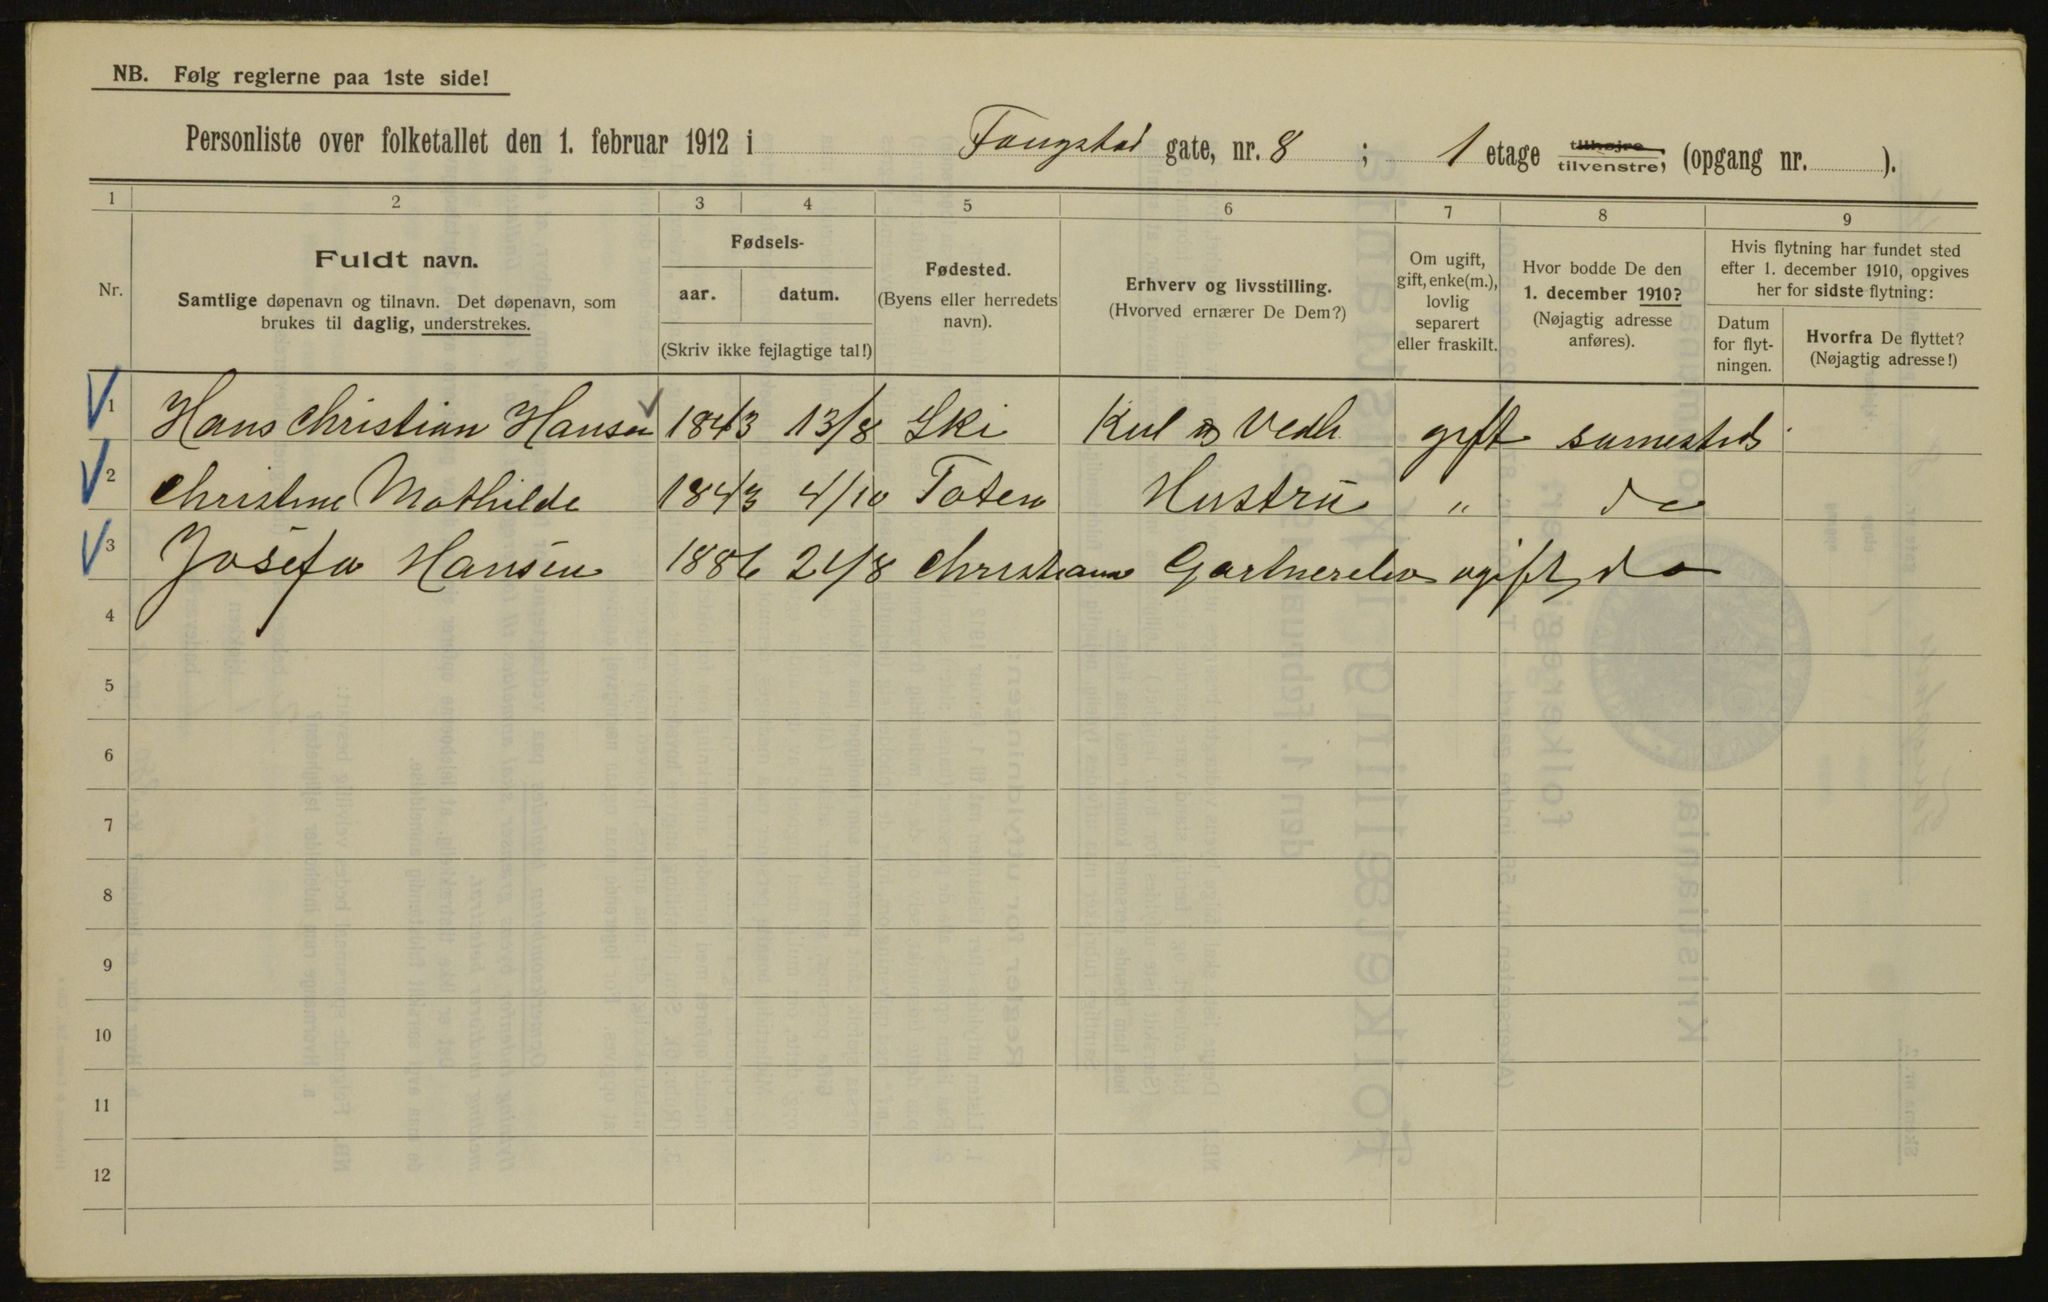 NB. Følg reglerne paa 1ste side!
Personliste over folketallet den 1. februar 1912 i Fougstad gate, nr. 8 ; 1 etage tilhøjre, tilvenstre, (opgang nr. ).
1 2 3 4 5 6 7 8 9
Nr.
Fuldt navn.
Samtlige døpenavn og tilnavn. Det døpenavn, som
brukes til daglig, understrekes.
Fødsels-
aar. datum.
(Skriv ikke fejlagtige tal!)
Fødested.
(Byens eller herredets
navn).
Erhverv og livsstilling.
(Hvorved ernærer De Dem?)
Om ugift,
gift, enke(m.),
lovlig
separert
eller fraskilt.
Hvor bodde De den
1. december 1910?
(Nøjagtig adresse
anføres).
Hvis flytning har fundet sted
efter 1. december 1910, opgives
her for sidste flytning:
Datum
for flyt-
ningen.
Hvorfra De flyttet?
(Nøjagtig adresse!)
1 Hans Christian Hansen 1843 13/8 Ski Kul Vedh. gift samesteds
2 Christine Mathilde 1843 4/10 Toten Hustru " do
3 Josefa Hansen 1886 24/8 Christiania Gartnerelev ugift do
4
5
6
7
8
9
10
11
12